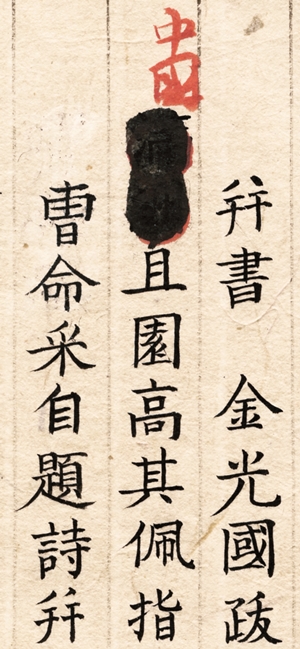 幷書 金光國跋
中国
且園高其佩指
曺命采自題詩幷